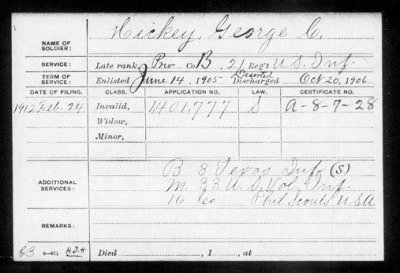 NAME OF SOLDIER: Hickey, George C.
SERVICE: Late rank, Priv Co B, 21 Reg't U.S. Inf
TERM OF SERVICE: Enlisted June 14, 1905 Deserted Discharged Oct 20, 1906
DATE OF FILING. CLASS. APPLICATION NO. LAW. CERTIFICATE NO.
1912 Feb. 24 Invalid, 1401.777 S A-8-7-28
Widow,
Minor,
ADDITIONAL SERVICES: B 3 Texas Inf (S)
M 33 U.S. Vol. Inf
16 Co Phil Scouts U.S.A
REMARKS:
Died , 1 , at